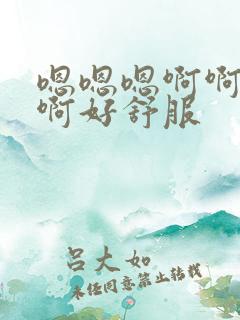 嗯嗯嗯啊啊
啊好舒服
吕大如
未经同意禁止转载